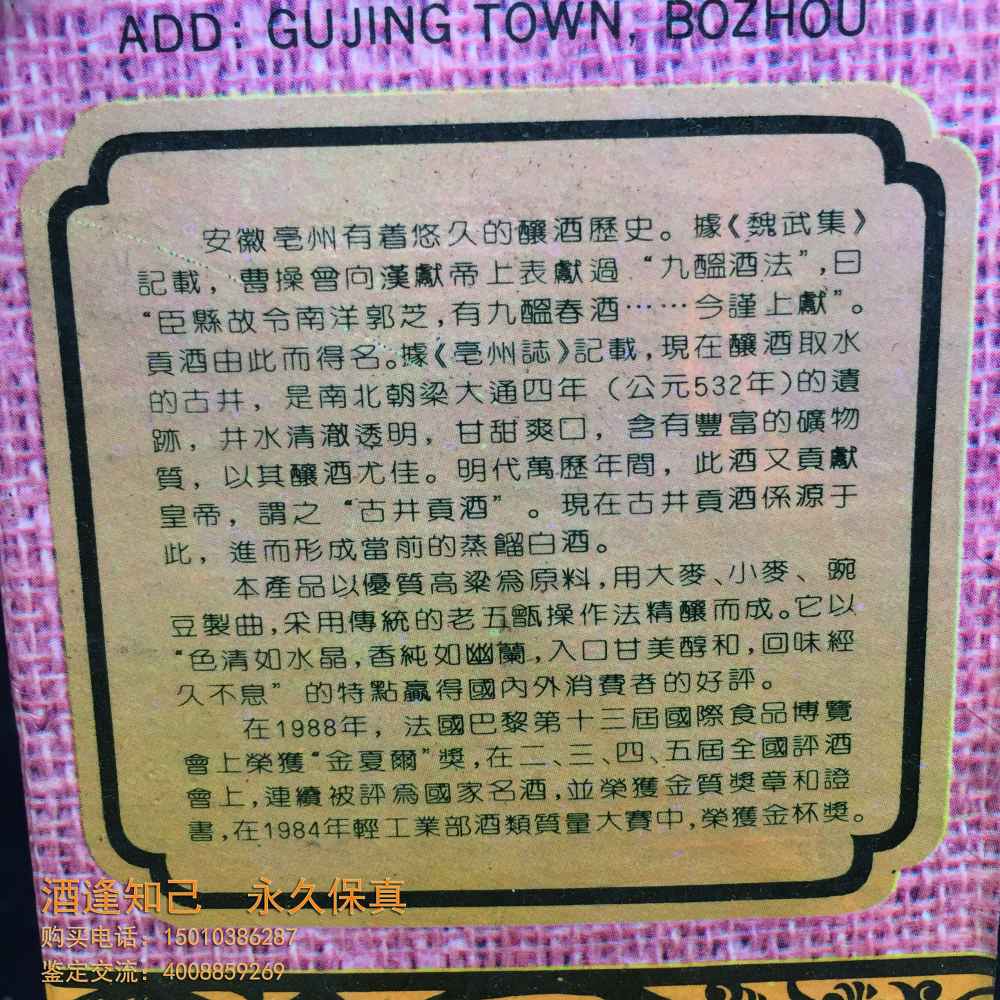 ADD: GUJING TOWN, BOZHOU
安徽亳州有着悠久的釀酒歷史。據《魏武集》
記載，曹操曾向漢獻帝上表獻過“九醞酒法”，曰
“臣縣故令南洋郭芝，有九醞春酒……今謹上獻”。
貢酒由此而得名。據《亳州誌》記載，現在釀酒取水
的古井，是南北朝梁大通四年（公元532年)的遺
跡，井水清澈透明，甘甜爽口，含有豐富的礦物
質，以其釀酒尤佳。明代萬歷年間，此酒又貢獻
皇帝，謂之“古井貢酒”。現在古井貢酒係源于
此，進而形成當前的蒸餾白酒。
本產品以優質高粱爲原料，用大麥、小麥、豌
豆製曲，采用傳統的老五甑操作法精釀而成。它以
“色清如水晶，香純如幽蘭，入口甘美醇和，回味經
久不息”的特點贏得國内外消費者的好評。
在1988年，法國巴黎第十三屆國際食品博覽
會上榮獲“金夏爾”獎，在二、三、四、五屆全國評酒
會上，連續被評爲國家名酒，並榮獲金質獎章和證
書，在1984年輕工業部酒類質量大賽中，榮獲金杯獎。
酒逢知己 永久保真
购买电话：15010386287
鉴定交流：4008859269